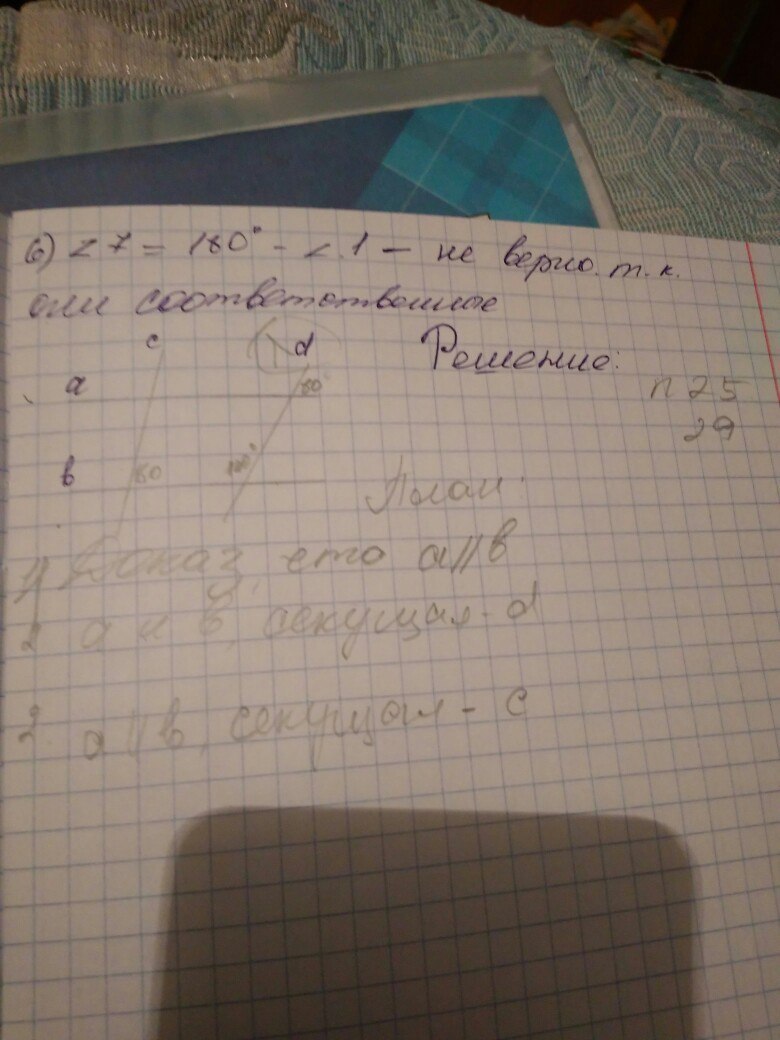 6) ∠7 = 180° - ∠1 - не верно. т. к.
они соответственные
c d
a 80°
Решение:
п 25
29
в 80 100°
План:
1) Доказ, что a||в
2 a и в, секущая - d
a||в, секущая - c